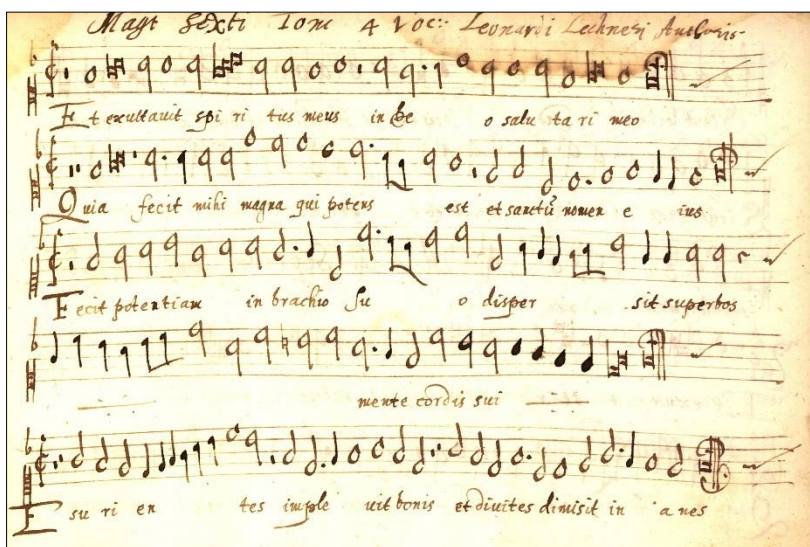 Magt Sexti Toni 4 Voc: Leonardi Lechneri Authoris.
Et exultauit spi ri tus meus in De o salu ta ri meo
Quia fecit mihi magna qui potens est et sanctũ nomen e ius
Fecit potentiam in brachio su o disper sit superbos
mente cordis sui
Esu ri en tes imple uit bonis et diuites dimisit in a nes